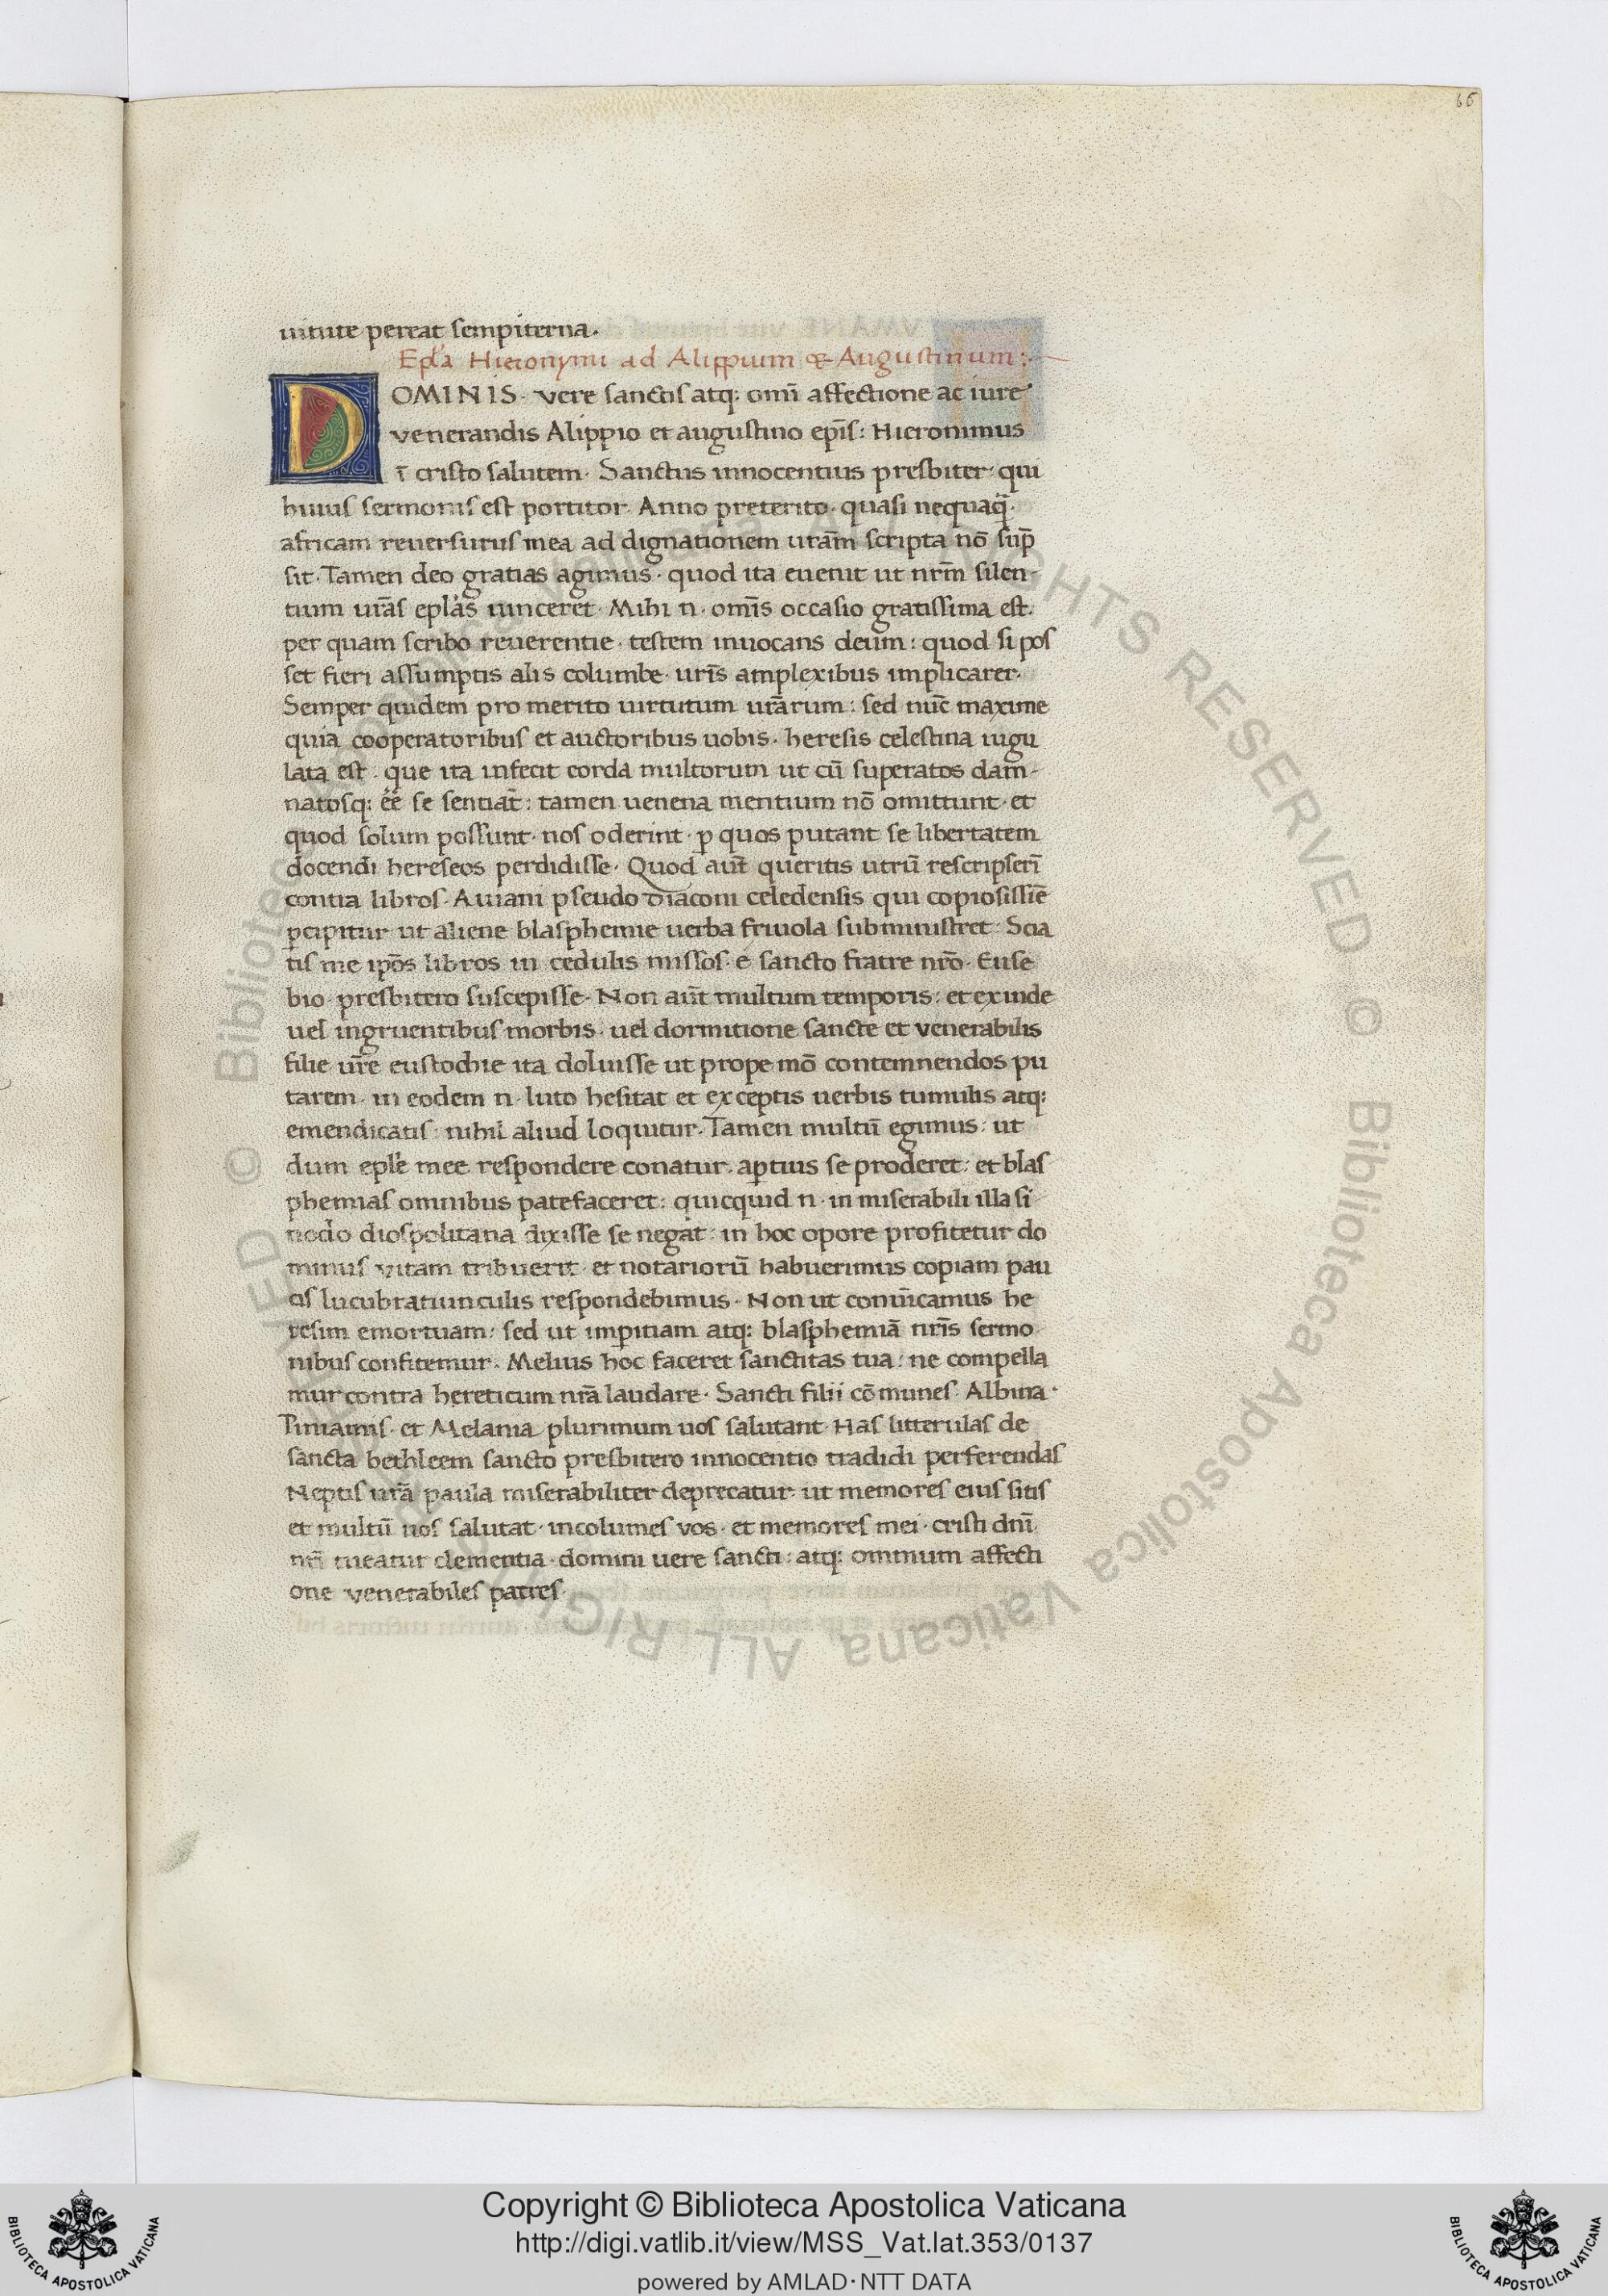 66
uitute pereat sempiterna.
Ep̅la Hieronymi ad Alippium & Augustinum:
DOMINIS. vere sanctis atq: om̅i affectione ac iure
venerandis Alippio et augustino ep̅is: Hieronimus
i̅ cristo salutem. Sanctus innocentius presbiter. qui
huius sermonis est portitor. Anno preterito. quasi nequaq̅.
africam reuersurus mea ad dignationem ura̅m scripta no̅ su̅p
sit. Tamen deo gratias agimus. quod ita euenit ut nr̅m silen-
tium ura̅s epl̅as uinceret. Mihi n. om̅is occasio gratissima est.
per quam scribo reuerentie. testem inuocans deum: quod si pos
set fieri assumptis alis columbe. uri̅s amplexibus implicarer.
Semper quidem pro merito uirtutum ura̅rum: sed nu̅c maxime
quia cooperatoribus et auctoribus uobis. heresis celestina iugu
lata est. que ita infecit corda multorum ut cu̅ superatos dam-
natosq: e̅e̅ se sentia̅t: tamen uenena mentium no̅ omittunt. et
quod solum possunt. nos oderint. p̲ quos putant se libertatem
docendi hereseos perdidisse. Quod au̅t queritis utru̅ rescripseri̅
contra libros. Auiani pseudo diaconi celedensis qui copiosissi̅e
p̲cipitur ut aliene blasphemie uerba friuola subministret: Scia
tis me ipo̅s libros in cedulis missos. e sancto fratre nr̅o. Euse
bio. presbitero suscepisse. Non au̅t multum temporis: et exinde
uel ingruentibus morbis. uel dormitione sancte et venerabilis
filie ur̅e eustochie ita doluisse ut prope mo̅ contemnendos pu
tarem. in eodem n. luto hesitat et exceptis uerbis tumulis atq:
emendicatis: nihil aliud loquitur. Tamen multu̅ egimus: ut
dum epl̅e mee respondere conatur. ap̲tius se proderet: et blas
phemias omnibus patefaceret: quicquid n. in miserabili illa si
nodo diospolitana dixisse se negat: in hoc opore profitetur do
minus vitam tribuerit. et notarioru̅ habuerimus copiam pau
cis lucubratiunculis respondebimus. Non ut conui̅camus he
resim emortuam: sed ut imp̲itiam atq: blasphemia̅ nri̅s sermo
nibus confitemur. Melius hoc faceret sanctitas tua: ne compella
mur contra hereticum nr̅a laudare. Sancti filii co̅munes. Albina.
Pinianis. et Melania plurimum uos salutant. Has litterulas de
sancta bethleem sancto presbitero innocentio tradidi perferendas
Neptis ur̅a paula miserabiliter deprecatur. ut memores eius sitis
et multu̅ uos salutat. incolumes vos. et memores mei. cristi dn̅i
nr̅i tueatur clementia. domini uere sancti: atq: omnium affecti
one venerabiles patres.
© Biblioteca Apostolica Vaticana ALL RIGHTS RESERVED
Copyright © Biblioteca Apostolica Vaticana
http://digi.vatlib.it/view/MSS_Vat.lat.353/0137
powered by AMLAD·NTT DATA
BIBLIOTECA APOSTOLICA VATICANA
BIBLIOTECA APOSTOLICA VATICANA